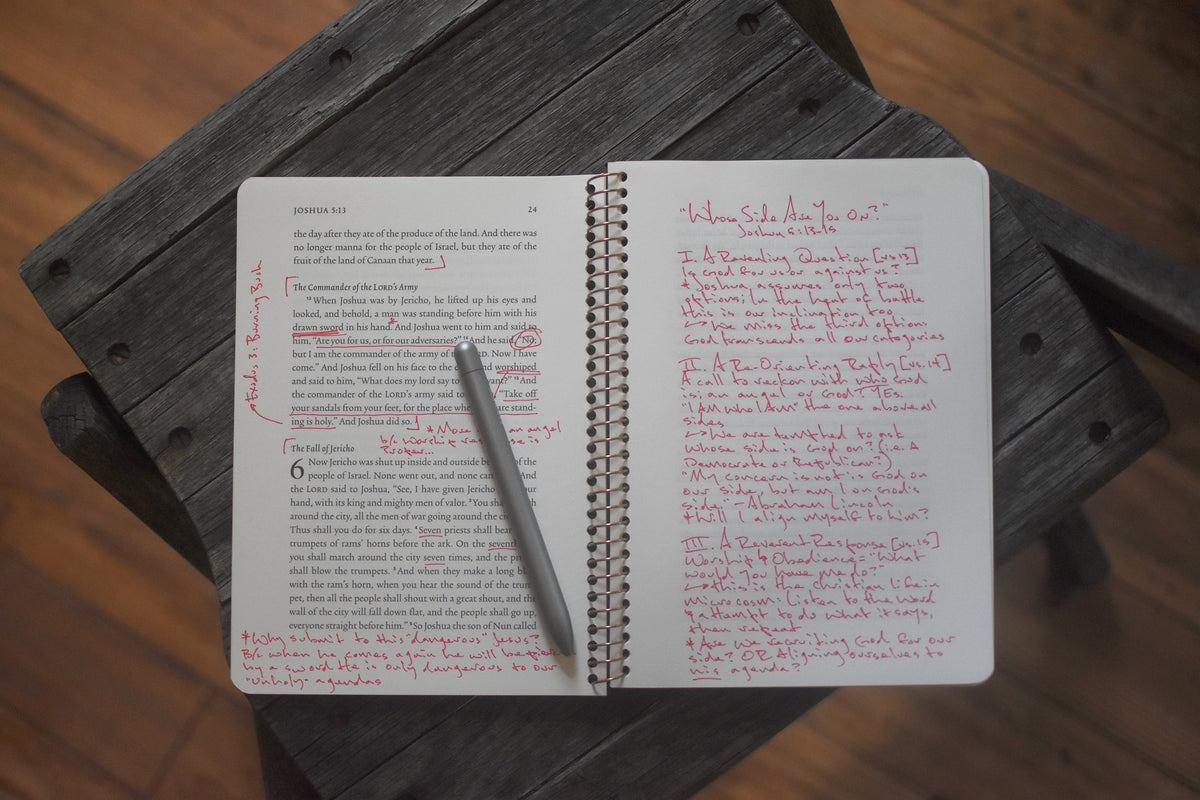 JOSHUA 5:13 24
the day after they ate of the produce of the land. And there was
no longer manna for the people of Israel, but they ate of the
fruit of the land of Canaan that year.
The Commander of the LORD's Army
13 When Joshua was by Jericho, he lifted up his eyes and
looked, and behold, a man was standing before him with his
drawn sword in his hand.* And Joshua went to him and said to
him, "Are you for us, or for our adversaries?" 14 And he said, "No;
but I am the commander of the army of LORD. Now I have
come." And Joshua fell on his face to the and worshiped
and said to him, "What does my lord say to 15 And
the commander of the LORD's army said to "Take off
your sandals from your feet, for the place whe are stand-
ing is holy." And Joshua did so.
Exodus 3: Burning Bush
*More an angel
b/c worship is
proper...
The Fall of Jericho
6 Now Jericho was shut up inside and outside of the
people of Israel. None went out, and none And
the LORD said to Joshua, "See, I have given Jericho our
hand, with its king and mighty men of valor. 3 You
around the city, all the men of war going around the
Thus shall you do for six days. 4 Seven priests shall
trumpets of rams' horns before the ark. On the seventh
you shall march around the city seven times, and the
shall blow the trumpets. 5 And when they make a long
with the ram's horn, when you hear the sound of the
pet, then all the people shall shout with a great shout, and the
wall of the city will fall down flat, and the people shall go up,
everyone straight before him." 6 So Joshua the son of Nun called
*Why submit to this "dangerous" Jesus?
B/c when he comes again he will be
by a sword He is only dangerous to our
"unholy" agendas
"Whose Side Are You On?"
Joshua 5:13-15
I. A Revealing Question [vs.13]
Is God for us or against us?
* Joshua assumes only two
options: In the heat of battle
this is our inclination too
↳ We miss the third option:
God transcends all our categories
II. A Re-Orienting Reply [vs.14]
A call to reckon with who God
is; an angel or God? YES.
"I AM who I Am" the one above all
sides
↳ We are tempted to ask
whose side is God on? (i.e. A
Democrat or Republican?)
"My concern is not is God on
our side, but am I on God's
side." - Abraham Lincoln
*Will I align myself to him?
III. A Reverent Response [vs.15]
Worship & Obedience = "What
would you have me do?"
↳ this is the christian life in
microcosm: Listen to the Word
& attempt to do what it says,
then repeat
* Are we recruiting God for our
side? OR Aligning ourselves to
his agenda?